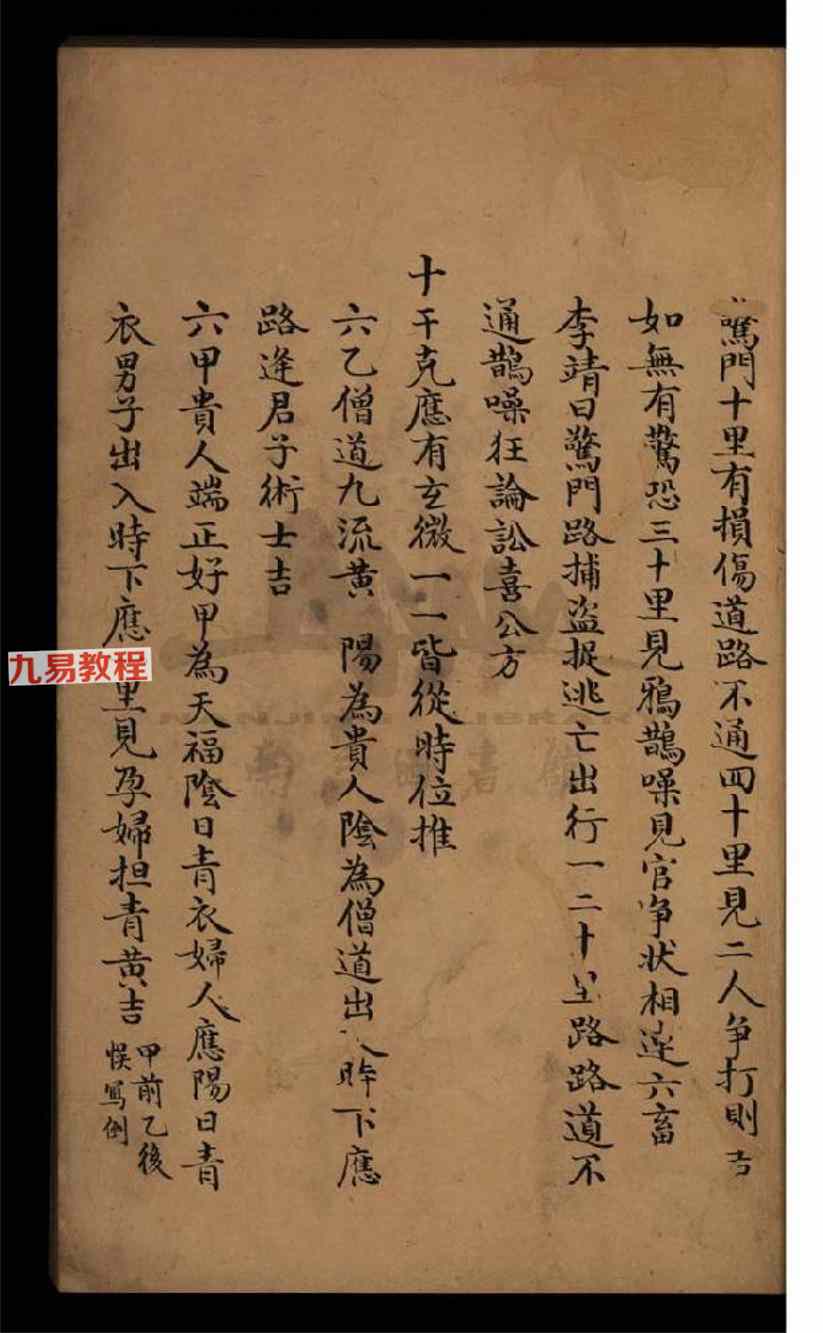 驚門十里有損傷道路不通四十里見二人争打則吉
如無有驚恐三十里見鴉鵲噪見官争狀相逢六畜
李靖曰驚門路捕盜捉逃亡出行一二十里路路道不
通鵲噪狂論訟喜公方
十干克應有玄微一一皆從時位推
六乙僧道九流黄 陽為貴人陰為僧道出入時下應
路逢君子術士吉
六甲貴人端正好甲為天福陰日青衣婦人應陽日青
衣男子出入時下應 里見孕婦担青黄吉
甲前乙後
悮寫倒
九易教程